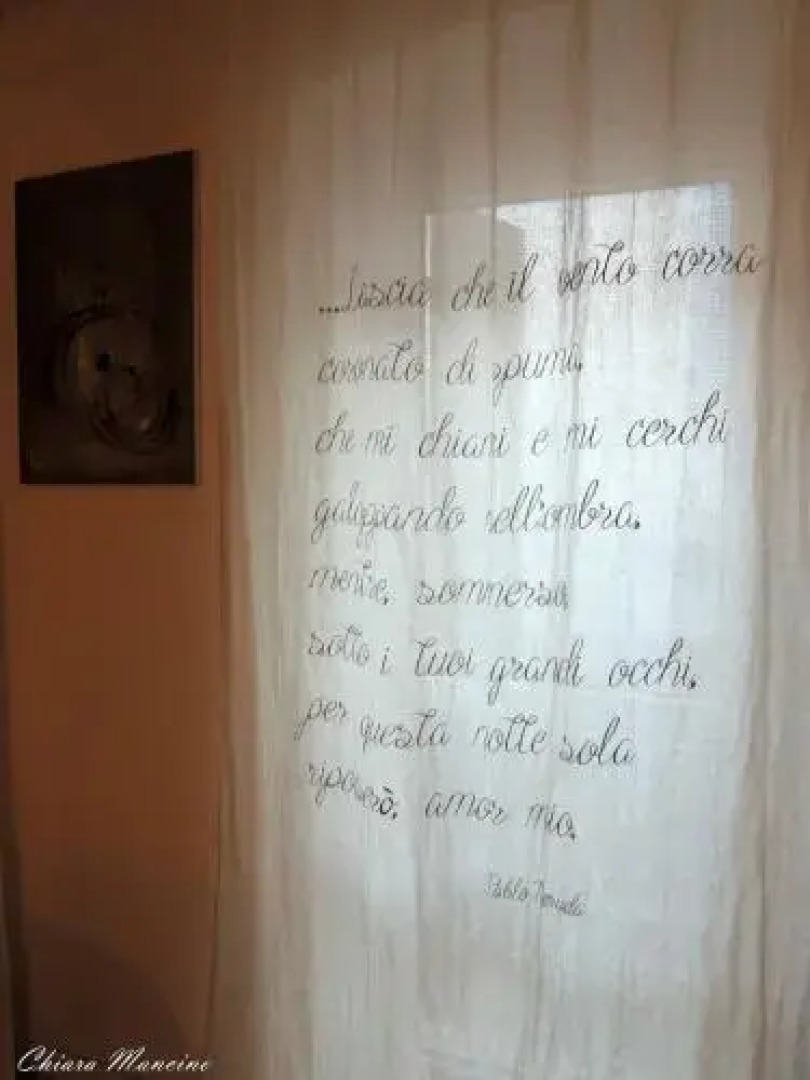 ...Lascia che il vento corra
coronato di spuma,
che mi chiami e mi cerchi
galoppando nell'ombra,
mentre, sommerso
sotto i tuoi grandi occhi,
per questa notte sola
riposerò, amor mio.
Pablo Neruda
Chiara Mancino